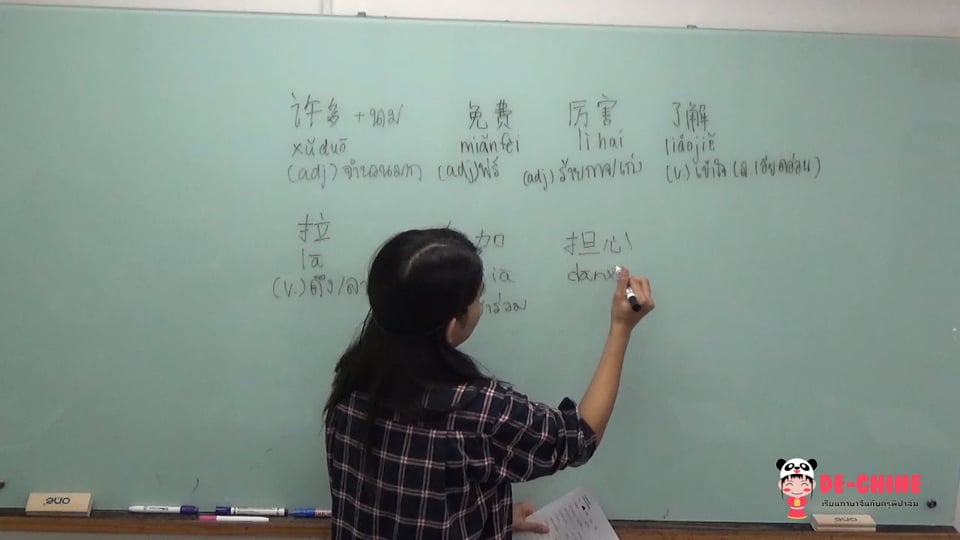 许多 + นาม 免费 厉害 了解
xǔduō miǎnfèi lìhai liǎojiě
(adj) จำนวนมาก (adj) ฟรี (adj) ร้ายกาจ/เก่ง (v.) เข้าใจ
拉 加 担心
lā iā dānx
(v.) ดึง/ลา าร่วม
one
DE-CHINE
เรียนภาษาจีนกับครูพี่ป่าล์ม